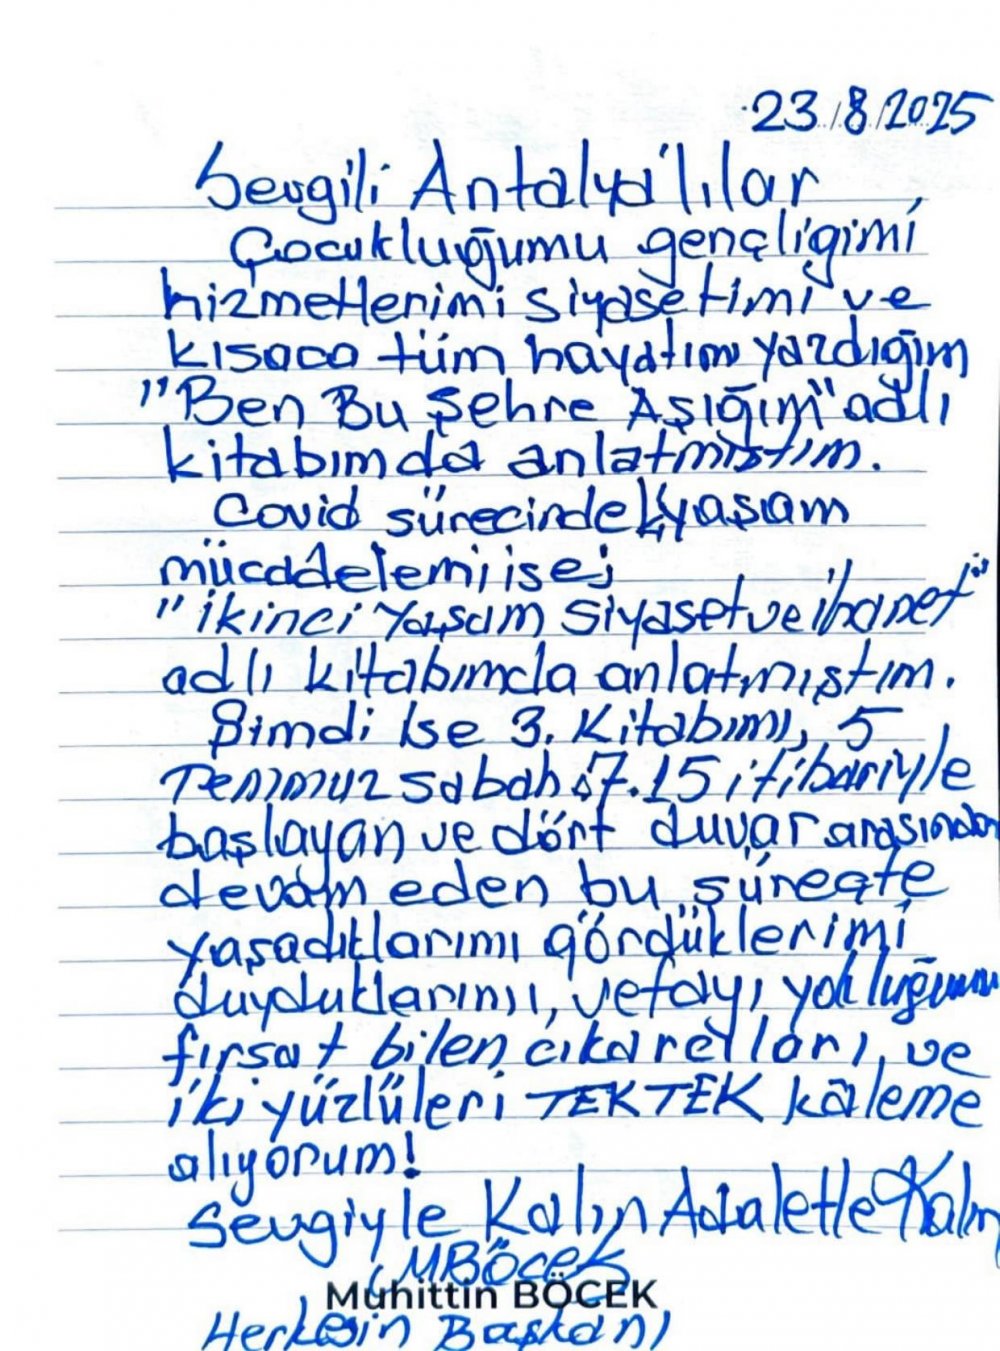 23/8/2025
Sevgili Antalya'lılar
Çocukluğumu gençliğimi
hizmetlerimi siyasetimi ve
kısaca tüm hayatım yazdığım
"Ben Bu Şehre Aşığım" adlı
kitabımda anlatmıştım.
Covid sürecindeki yaşam
mücadelemi ise;
"İkinci Yaşam Siyaset ve İhanet"
adlı kitabımda anlatmıştım.
Şimdi İse 3. Kitabımı, 5
Temmuz sabah 07.15 itibariyle
başlayan ve dört duvar arasından
devam eden bu süreçte
yaşadıklarımı gördüklerimi
duyduklarımı, vefayı yokluğumu
fırsat bilen çıkarcıları, ve
iki yüzlüleri TEK TEK kaleme
alıyorum!
Sevgiyle Kalın Adaletle Kalın
MBÖcek
Muhittin BÖCEK
Herkesin Başkanı